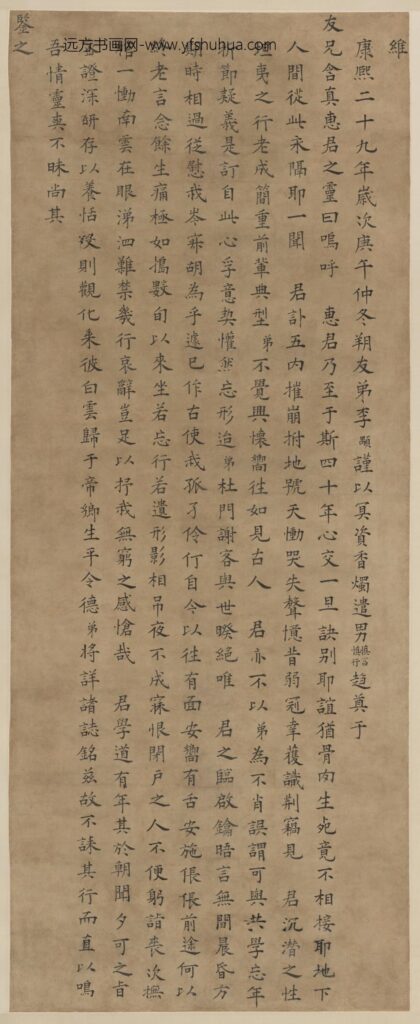 維
康熙二十九年歲次庚午仲冬朔友弟李顒謹以冥資香燭遣男慎言慎行趨奠于
友兄含真惠君之靈曰嗚呼 惠君乃至于斯四十年心交一旦訣別耶誼猶骨肉生死竟不相接耶地下
人間從此永隔耶一聞 君訃五內摧崩拊地號天慟哭失聲憶昔弱冠幸獲識荆竊見 君沉潛之性
坦夷之行老成簡重前輩典型弟不覺興懷嚮往如見古人 君亦不以弟為不肖誤謂可與共學忘年
折節疑義是訂自此心孚意契懽然忘形迨弟杜門謝客與世暌絕唯 君之臨啟鑰晤言無間晨昏方
期時相過從慰我岑寂胡為乎遽已作古使我孤孑伶仃自今以往有面安嚮有舌安施倀倀前途何以
終老言念餘生痛極如搗數旬以來坐若忘行若遺形影相吊夜不成寐恨閉戶之人不便躬詣喪次撫
棺一慟南雲在眼涕泗難禁幾行哀辭豈足以抒我無窮之感愴哉 君學道有年其於朝聞夕可之旨
證深研存以養恬歿則觀化乘彼白雲歸于帝鄉生平令德弟將詳諸誌銘茲故不誄其行而直以鳴
吾情靈爽不昧尚其
鑒之
远方书画网 www.yfshuhua.com